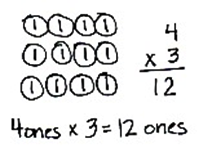 1 1 1 1
1 1 1 1
1 1 1 1
4
x 3
12
4 ones x 3 = 12 ones